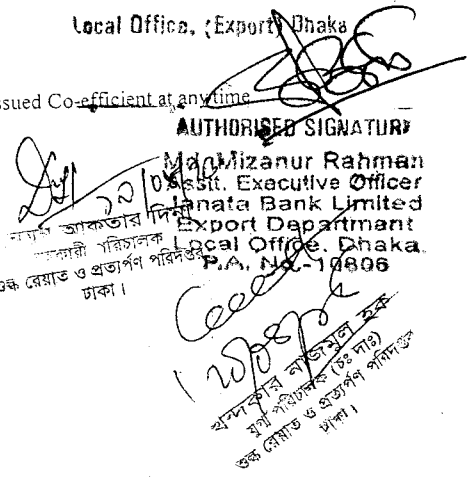 Local Office, (Export) Dhaka
ssued Co-efficient at any time
AUTHORISED SIGNATURE
Md. Mizanur Rahman
Asstt. Executive Officer
Janata Bank Limited
Export Department
Local Office, Dhaka
P.A. No.-10806
আকতার দিনা
সহকারী পরিচালক
শুল্ক রেয়াত ও প্রত্যর্পণ পরিদপ্তর
ঢাকা।
খন্দকার নাজমুল হক
যুগ্ম পরিচালক (চঃ দাঃ)
শুল্ক রেয়াত ও প্রত্যর্পণ পরিদপ্তর
ঢাকা।